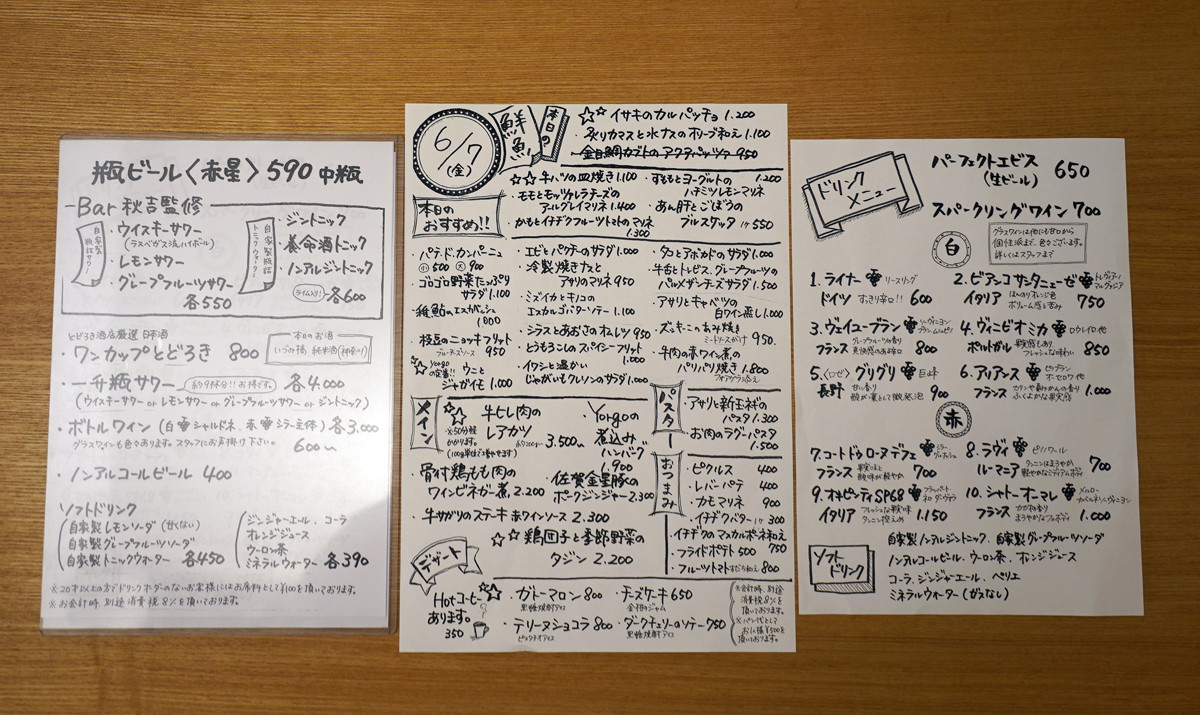 瓶ビール〈赤星〉590 中瓶
Bar 秋吉監修
自家製瓶詰サワー
・ウイスキーサワー
(ラスベガス流ハイボール)
・レモンサワー
・グレープフルーツサワー
各550
自家製瓶詰トニックウォーター
・ジントニック
・養命酒トニック
・ノンアルジントニック
ライム入り! 各600
とどろき酒店厳選 日本酒
・ワンカップとどろき 800
本日のお酒
・一升瓶サワー 約9杯分!!お得です。 各4.000
(ウイスキーサワー or レモンサワー or グレープフルーツサワー or ジントニック)
・ボトルワイン (白 シャルドネ、赤 シラー主体) 各3.000
グラスワインも色々あります。スタッフにお声掛け下さい。 600〜
・ノンアルコールビール 400
ソフトドリンク
自家製レモンソーダ (甘くない)
自家製グレープフルーツソーダ
自家製トニックウォーター 各450
ジンジャーエール、コーラ
オレンジジュース
ウーロン茶
ミネラルウォーター 各390
※20才以上の方でドリンクオーダーのないお客様にはお席料として¥100を頂いております。
※お会計時、別途消費税8%を頂いております。
6/7(金)
本日の鮮魚
☆☆イサキのカルパッチョ 1.200
・炙りカマスと水ナスのオリーブ和え 1.100
・金目鯛カブトのアクアパッツァ 950
本日のおすすめ!!
☆☆牛ハツの皿焼き 1.100
・モモとモッツァレラチーズのアールグレイマリネ 1.400
・かもとイチヂクフルーツトマトのマリネ 1.300
・すももとヨーグルトのハチミツレモンマリネ 1.200
・あん肝とごぼうのブルスケッタ 550
・パテ・ド・カンパーニュ
小500 大900
・ゴロゴロ野菜たっぷりサラダ 1.100
・稚鮎のエスカベシュ 1000
・枝豆のニョッキフリット 950
ブルーチーズソース
☆Yorgoの定番!! ウニとジャガイモ 1.000
・エビとパクチーのサラダ 1.000
・冷製焼きナスとアサリのマリネ 950
・ミズイカとキノコのエスカルゴバターソテー 1.100
・シラスとあおさのオムレツ 950
・とうもろこしのスパイシーフリット 1.000
・イワシと温かいじゃがいもクレソンのサラダ 1.000
・タコとアボカドのサラダ 1.000
・牛舌とトレビス、グレープフルーツのパルメザンチーズサラダ 1.500
・アサリとキャベツの白ワイン蒸し 1.000
・ズッキーニのあみ焼き
ミートソースがけ 950.
・牛肉の赤ワイン煮のパリパリ焼き 1.800
フォアグラ添え
メイン
☆☆牛ヒレ肉のレアカツ
※50分程かかります。 約200gー 3.500〜
(100g単位で増やせます)
・Yorgoの煮込みハンバーグ 1.900
・骨付鶏もも肉のワインビネガー煮 2.200
・佐賀金星豚のポークジンジャー 2.300
・牛サガリのステーキ 赤ワインソース 2.300
☆☆鶏団子と季節野菜のタジン 2.200
パスタ
・アサリと新玉ネギのパスタ 1.300
・お肉のラグーパスタ 1.500
おつまみ
・ピクルス 400
・レバーパテ 400
・カモマリネ 900
・イチヂクバター 300
・イチヂクのマスカルポーネ和え 750
・フライドポテト 500
・フルーツトマトすだち和え 800
デザート
Hotコーヒーあります。350
☆☆・ガトーマロン 800
黒糖焼酎アイス
・チーズケーキ 650
金柑のジャム
・テリーヌショコラ 800
ピスタチオアイス
・ダークチェリーのソテー 750
黒糖焼酎アイス
※会計時、別途消費税8%を頂いております。
※パン代としてお1人様¥500を頂いております。
ドリンクメニュー
パーフェクトエビス(生ビール) 650
スパークリングワイン 700
グラスワインは他にもゼロから個性派まで、色々ございます。詳しくはスタッフまで
白
1. ライナー リースリング
ドイツ すっきり辛口!! 600
2. ビアンコサンタニューゼ
イタリア ほんのりオレンジ色 ボリューム感と苦み 750
3. ヴェイユーブラン
フランス グレープフルーツの香り 爽快感のある辛口 800
4. ヴィニピオミカ ロウレイロ他
ポルトガル 果実感もありフレッシュな味わい 850
5. 〈ロゼ〉グリグリ 巨峰
長野 甘い香り 900
6. アリアンス
フランス ふくよかな果実感 1.000
赤
7. コートドゥローヌデフェ
フランス 果実味と酸味が軽やか 700
8. ラヴィ ピノノワール
ルーマニア タンニンはまろやか 軽やかなミディアムボディ 700
9. オルピンティSP68
イタリア フレッシュな果実味 タンニン控えめ 1.150
10. シャトーオーマレ メルロー カベルネソーヴィニヨン
フランス まろやかなフルボディ 1.000
ソフトドリンク
自家製ノンアルジントニック、自家製グレープフルーツソーダ
ノンアルコールビール、ウーロン茶、オレンジジュース
コーラ、ジンジャーエール、ペリエ
ミネラルウォーター (ガスなし)